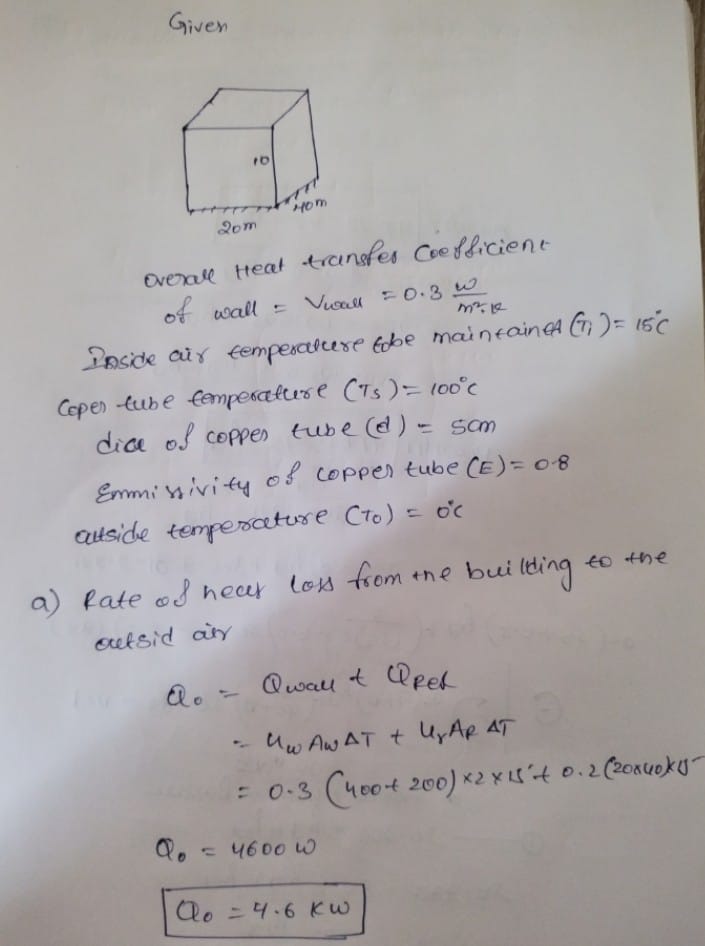 Given
10
40m
20m
Overall Heat transfer Coefficient
of wall = Vwall = 0.3 W/m².k
Inside air temperature tobe maintained (Ti) = 15°C
Coper tube temperature (Ts) = 100°C
dia of copper tube (d) = 5cm
Emmissivity of copper tube (E) = 0.8
outside temperature (To) = 0°C
a) Rate of heat loss from the building to the
outsid air
Qo = Qwall +
= Uw Aw ΔT + Ur AR ΔT
= 0.3 (400+200)×2×15 + 0.2(20×40)×15
Qo = 4600 W
Qo = 4.6 KW